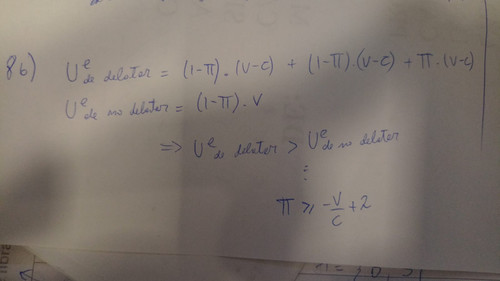 8b) U^e de delatar = (1-π).(v-c) + (1-π).(v-c) + π.(v-c)
U^e de no delatar = (1-π).v
=> U^e de delatar > U^e de no delatar
⋮
π ≥ -v/c + 2